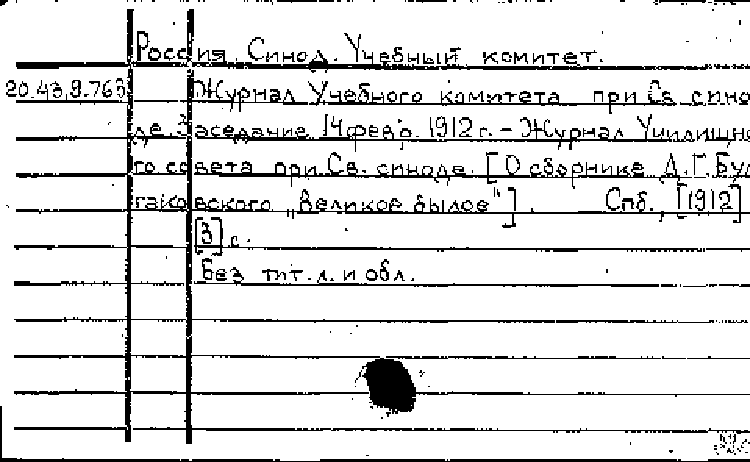 Россия. Синод. Учебный комитет.
20.43.9.763 Журнал Учебного комитета при Св. сино
де. Заседание 14 февр. 1912 г. – Журнал Училищно
го совета при Св. синоде. [О сборнике Д.Г. Бул
гаковского „Великое былое"]. Спб., [1912]
[3] с.
Без тит. л. и обл.